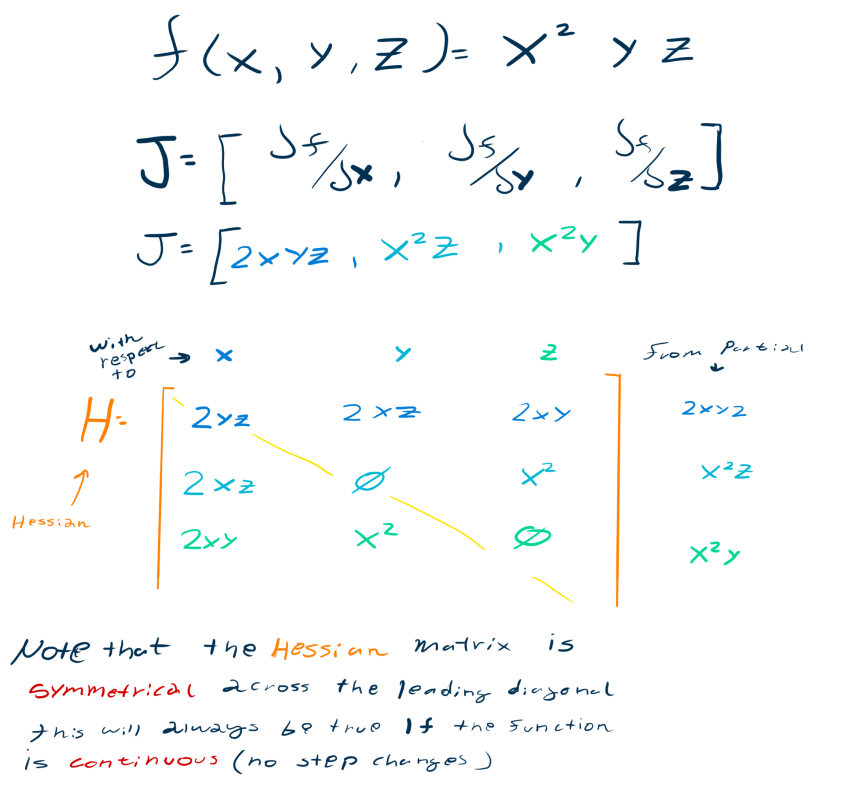 f(x, y, z) = x² y z
J = [ ∂f/∂x, ∂f/∂y, ∂f/∂z ]
J = [ 2xyz, x²z, x²y ]
with respect to → x y z From Partial ↓
H = 2yz 2xz 2xy 2xyz
2xz ∅ x² x²z
Hessian
2xy x² ∅ x²y
Note that the Hessian matrix is
symmetrical across the leading diagonal
this will always be true If the function
is continuous (no step changes)